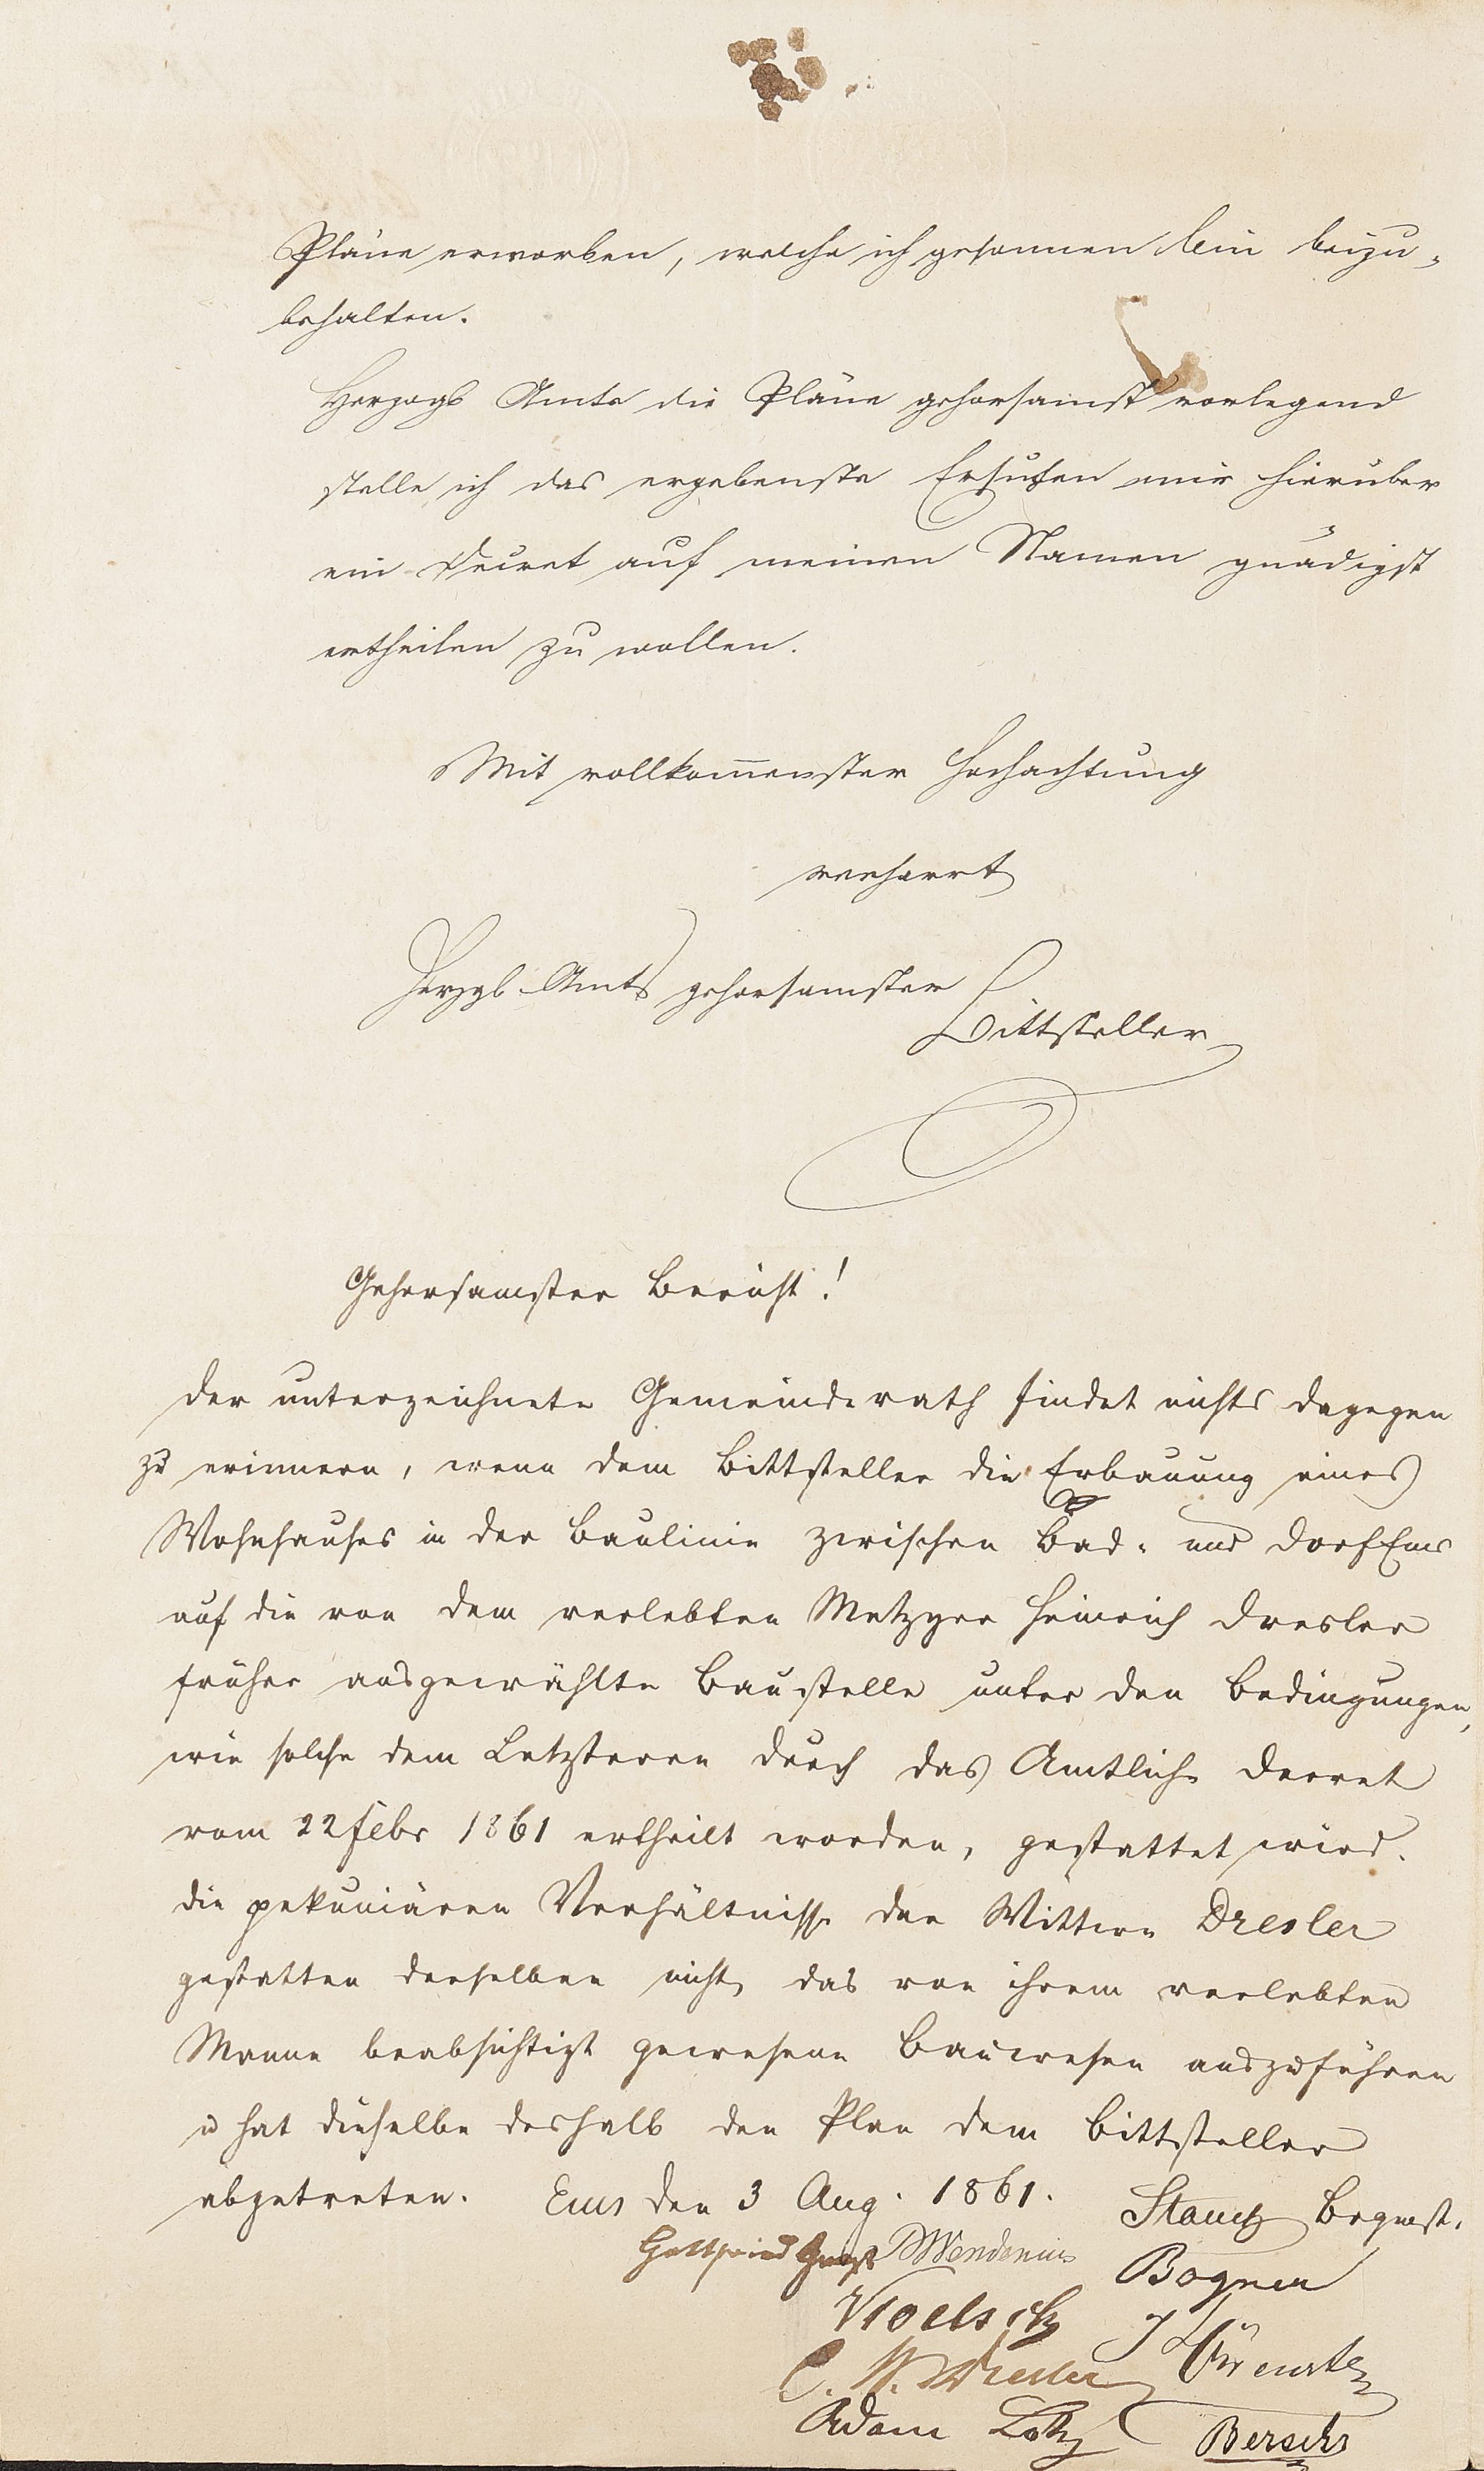 Pläne erworben, welche ich gesonnen bin beizu-
behalten.
Herzogl Amte die Pläne gehorsamst vorlegend
stelle ich das ergebenste Ersuchen mir hierüber
ein Decret auf meinen Namen gnädigst
ertheilen zu wollen.
Mit vollkom̅enster Hochachtung
verharrt
Herzgl Amts gehorsamster
Bittsteller
Gehorsamster Bericht!
Der unterzeichnete Gemeinderath findet nichts dagegen
zu erinnern, wenn dem Bittsteller die Erbauung eines
Wohnhauses in der Baulinie zwischen Bad- und Dorf Ems
auf die von dem verlebten Metzger Heinrich Dresler
früher ausgewählte Baustelle unter den Bedingungen,
wie solche dem Letzteren durch das Amtliche Decret
vom 22 Febr 1861 ertheilt worden, gestattet wird.
die pekuniären Verhältnisse der Wittwe Dresler
gestatten derselben nicht, das von ihrem verlebten
Manne beabsichtigt gewesene Bauwesen auszuführen
u hat dieselbe deshalb den Plan dem Bittsteller
abgetreten. Ems den 3 Aug. 1861.
Bogner
Adam Lotz